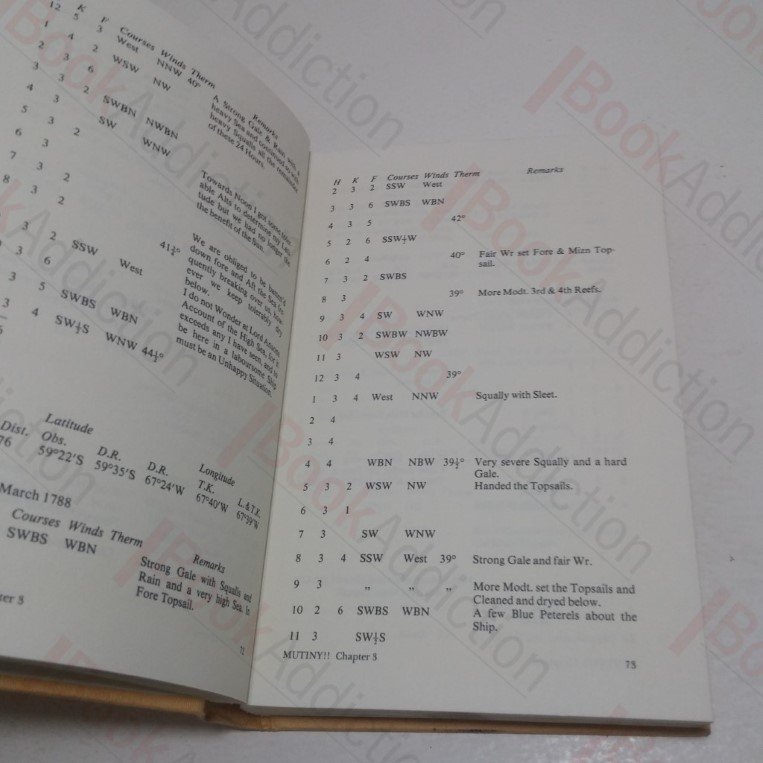 12 K F Courses Winds Therm Remarks
5 3 West NNW 40° A Strong Gale & Rain with a
1 4 2 heavy Sea and continued so with
2 3 6 WSW NW heavy Squalls all the remainder
3 3 2 SWBN NWBN of these 24 Hours.
4 3 SW WNW
5 3 2
6 3 Towards Noon I got some toler-
7 3 2 able Alts to determine my Lati-
8 3 2 tude but we had no longer the
the benefit of the Sun.
3 2 SSW 41½° We are obliged to be batten'd
3 6 West down fore and Aft the Sea fre-
3 5 SWBS WBN quently breaking over us, how-
3 4 SW½S WNW 44½° ever we keep tolerably dry
below.
I do not Wonder at Lord Ansons
Account of the High Sea, for it
exceeds any I have seen, and to
be here in a laboursome Ship
must be an Unhappy Situation.
Latitude Longitude
Dist. Obs. D.R. D.R. T.K. L.&T.K.
76 59°22'S 59°35'S 67°24'W 67°40'W 67°39'W
March 1788
Courses Winds Therm Remarks
SWBS WBN Strong Gale with Squalls and
Rain and a very high Sea. In
Fore Topsail.
H K F Courses Winds Therm Remarks
2 3 2 SSW West
3 3 6 SWBS WBN
4 3 5 42°
5 2 6 SSW½W
6 2 4 40° Fair Wr set Fore & Mizn Top-
sail.
7 3 2 SWBS
8 3 39° More Modt. 3rd & 4th Reefs.
9 3 4 SW WNW
10 3 2 SWBW NWBW
11 3 WSW NW
12 3 4 39°
1 3 4 West NNW Squally with Sleet.
2 4
3 4
4 4 WBN NBW 39½° Very severe Squally and a hard
Gale.
5 3 2 WSW NW Handed the Topsails.
6 3 1
7 3 SW WNW
8 3 4 SSW West 39° Strong Gale and fair Wr.
9 3 „ „ „ More Modt. set the Topsails and
Cleaned and dryed below.
10 2 6 SWBS WBN A few Blue Peterels about the
Ship.
11 3 SW½S
MUTINY!! Chapter 3 73
BookAddiction